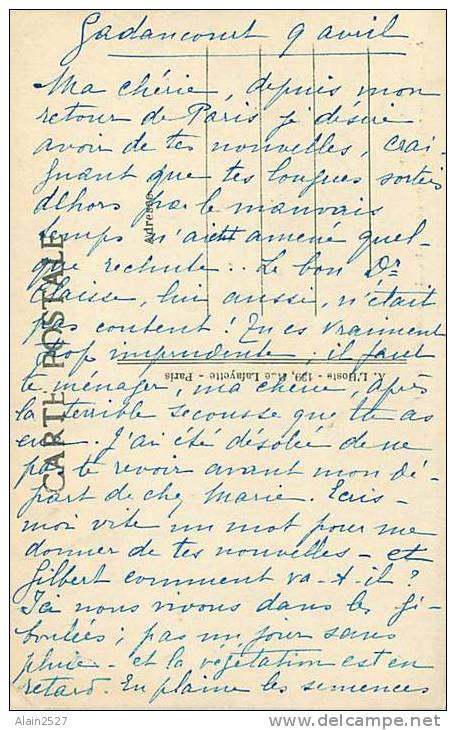 Gadancourt 9 avril
Ma chérie, depuis mon
retour de Paris je désire
avoir de tes nouvelles, crai-
gnant que tes longues sorties
dehors par le mauvais
temps n'aient amené quel-
que rechute... Le bon Dr
Claisse, lui aussi, n'était
pas content ! Tu es vraiment
trop imprudente, il faut
te ménager, ma chérie, après
la terrible secousse que tu as
eue. J'ai été désolée de ne
pas te revoir avant mon dé-
part de chez Marie. Ecris-
moi vite un mot pour me
donner de tes nouvelles - et
Gilbert comment va-t-il ?
Ici nous vivons dans les gi-
boulées ; pas un jour sans
pluie - et la végétation est en
retard. En plaine les semences
CARTE POSTALE
Adresse
A. L'Hoste - 129, Rue Lafayette - Paris
Alain2527